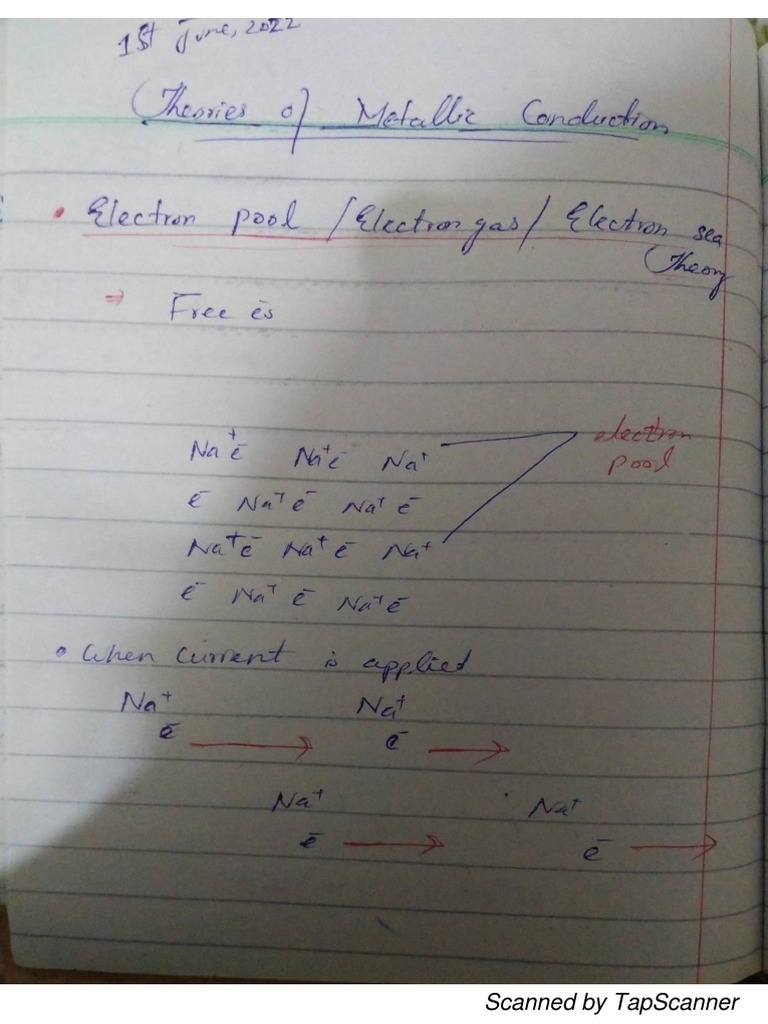 1st June, 2022
Theories of Metallic Conduction
• Electron pool / Electron gas / Electron sea
Theory
⇒ Free ēs
Na⁺ ē Na⁺ ē Na⁺ electron
pool
ē Na⁺ ē Na⁺ ē
Na⁺ ē Na⁺ ē Na⁺
ē Na⁺ ē Na⁺ ē
• When current is applied
Na⁺ Na⁺
ē → ē →
Na⁺ Na⁺
ē → ē →
Scanned by TapScanner